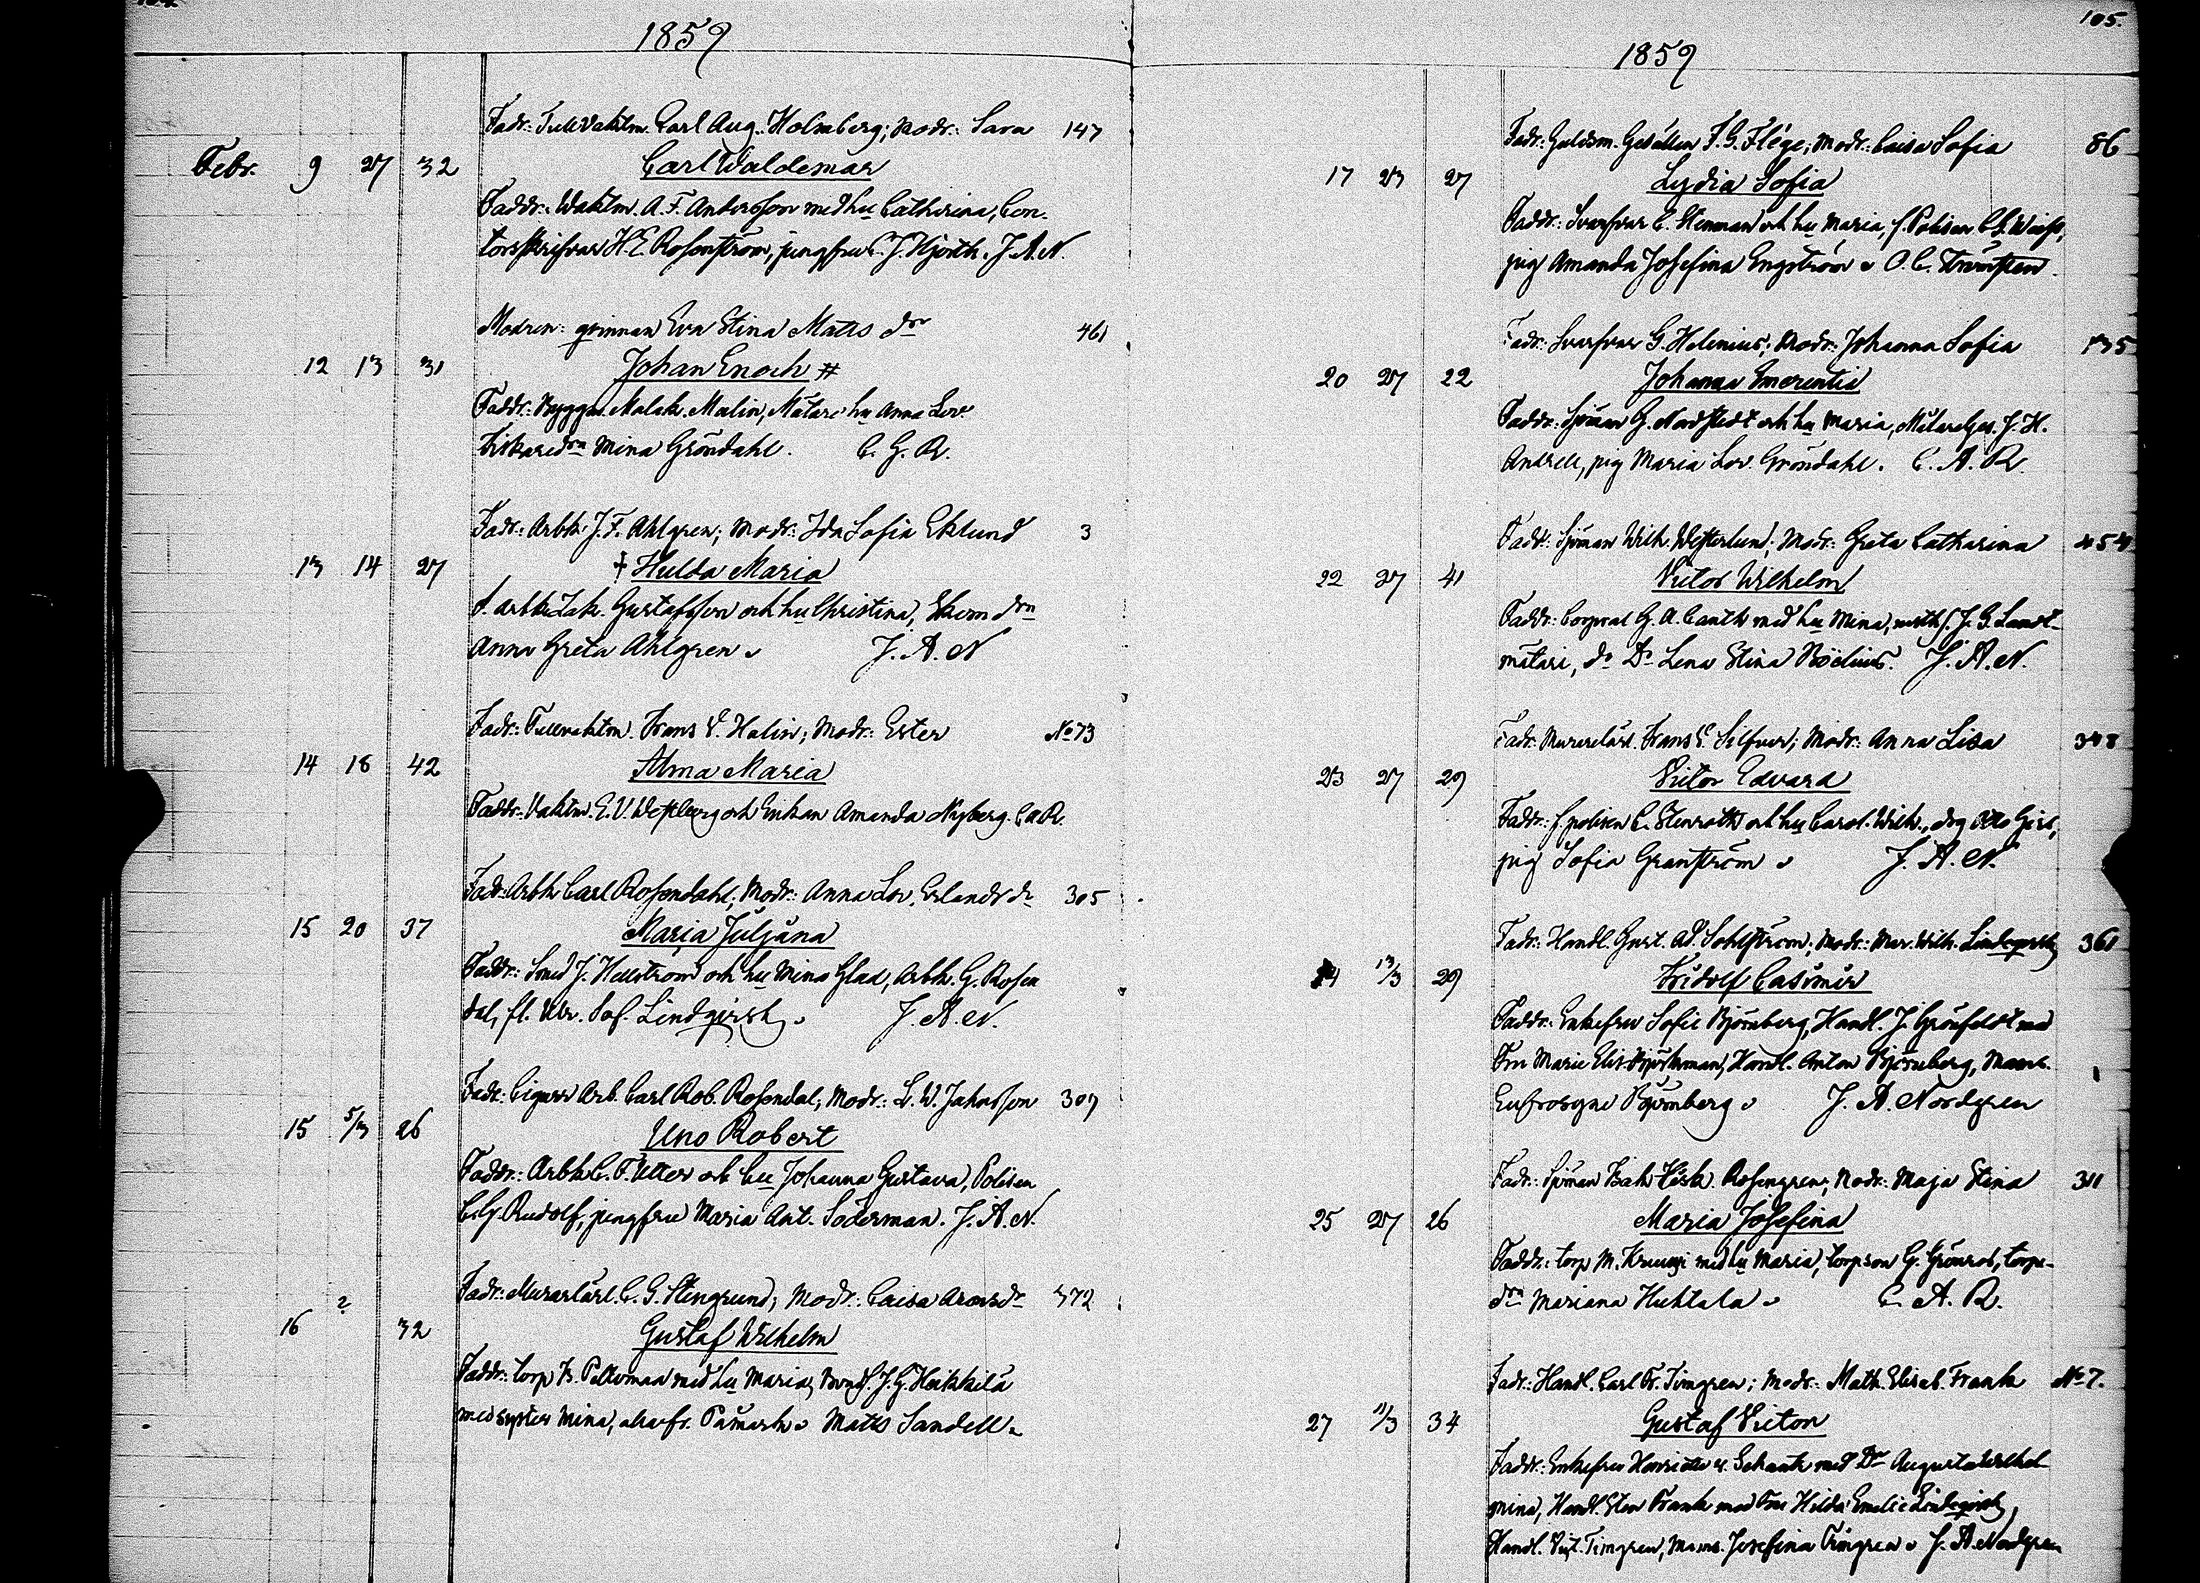 1859
Fadr: Tullvaktm. Carl Aug. Holmberg; Modr: Sara 147
Febr. 9 27 32 Carl Waldemar
Faddr: Waktm. A. F. Andersson med hu Catharina, Con-
torskrifvar H. E. Rosenström, jungfru J. Hjorth. J. A. N.
Modren: qvinnan Eva Stina Matts dr 461
12 13 31 Johan Enoch #
Faddr: Byggm. Malak. Malin, Mätare hu Anna Lov.
Fiskaredrn Mina Gröndahl. C. G. R.
Fadr: Arbk. J. F. Ahlgren; Modr: Ida Sofia Eklund 3
13 14 27 † Hulda Maria
f. arbk. Isak. Gustafsson och hu Christina, Skom drn
Anna Greta Ahlgren J. A. N
Fadr: Tullvaktm. Frans V. Halin; Modr: Ester No 73
14 18 42 Alma Maria
Faddr: Vaktm. E. V. Westberg och Enkan Amanda Nyberg. C A R.
Fadr: Arbk. Carl Rosendahl; Modr: Anna Lov. Erlandsdr 305
15 20 37 Maria Juljana
Faddr: Smed J. Hellström och hu Mina Glad, Arbk. G. Rosen
dal, fl. Ulr. Sof. Lindqvist J. A. N.
Fadr: Cigarr Arb. Carl Rob. Rosendal, Modr: L. W. Jakobsson 307
15 5/3 26 Uno Robert
Faddr: Arbk. C. F. Utter och hu Johanna Gustava, Polisen
C. G. Rudolf, jungfru Maria Ant. Söderman. J. A. N.
Fadr: Murarlärl. C. G. Stengrund; Modr: Caisa Aronsdr 372
16 ? 32 Gustaf Wilhelm
Faddr: torp Fr. Peltomaa med hu Maria, J. G. Heikkilä
med syster Mina, alla fr. Påmark. Matts Sandell.
105.
1859
Fadr: Guldsm. Gesällen F. G. Flége; Modr: Caisa Sofia 86
17 23 27 Lydia Sofia
Faddr: Svarfvar C. Stenman och hu Maria, f. Polisen
pig Amanda Josefina Engström O. C. Törnsten
Fadr: Svarfvar G. Helenius; Modr: Johanna Sofia 135
20 27 22 Johanna Emerentia
Faddr: Sjöman G. Nordstedt och hu Maria, Målareges. J. H.
Andrell, pig Maria Lov. Gröndahl. C. A. R.
Fadr: Sjöman Wilh. Westerlund; Modr: Greta Catharina 454
22 27 41 Victor Wilhelm
Faddr: Corporal G. A. Canth med hu Mina, J. G. Landt-
mätari, Dr Lena Stina Böelius. J. A. N.
Fadr: Murarelärl. Frans E. Silfver; Modr: Anna Lisa 348
23 27 29 Victor Edvard
Faddr: f. polisen C. Stenroth och hu Carol. Wilh., drg Otto
pig Sofia Granström J. A. N.
Fadr: Handl. Gust. Ad. Sohlström; Modr: Mar. Wilh. Lindqvist 361
24 13/3 29 Fridolf Casimir
Faddr: Enkefru Sofie Björnberg, Handl. J. Grönfeldt med
Fru Marie Elis Björkman, Handl. Anton Björnberg, Mams.
Eufrosyne Björnberg J. A. Nordgren
Fadr: Sjöman Isak Rosengren; Modr: Maja Stina 311
25 27 26 Maria Josefina
Faddr: torp M. Kruusi med hu Maria, torpson G. Grönros, torp-
drn Mariana Huhtala C. A. R.
Fadr: Handl. Carl Fr. Timgren; Modr: Math. Elisab. Frank No 7.
27 11/3 34 Gustaf Victor
Faddr: Enkefru Henriette v. Schantz med Dr Augusta Wilhel-
mina, Handl. Sten Frank med Fru Hilda Emelie Lindqvist,
Handl. Vict. Timgren, Mams. Josefina Timgren J. A. Nordgren